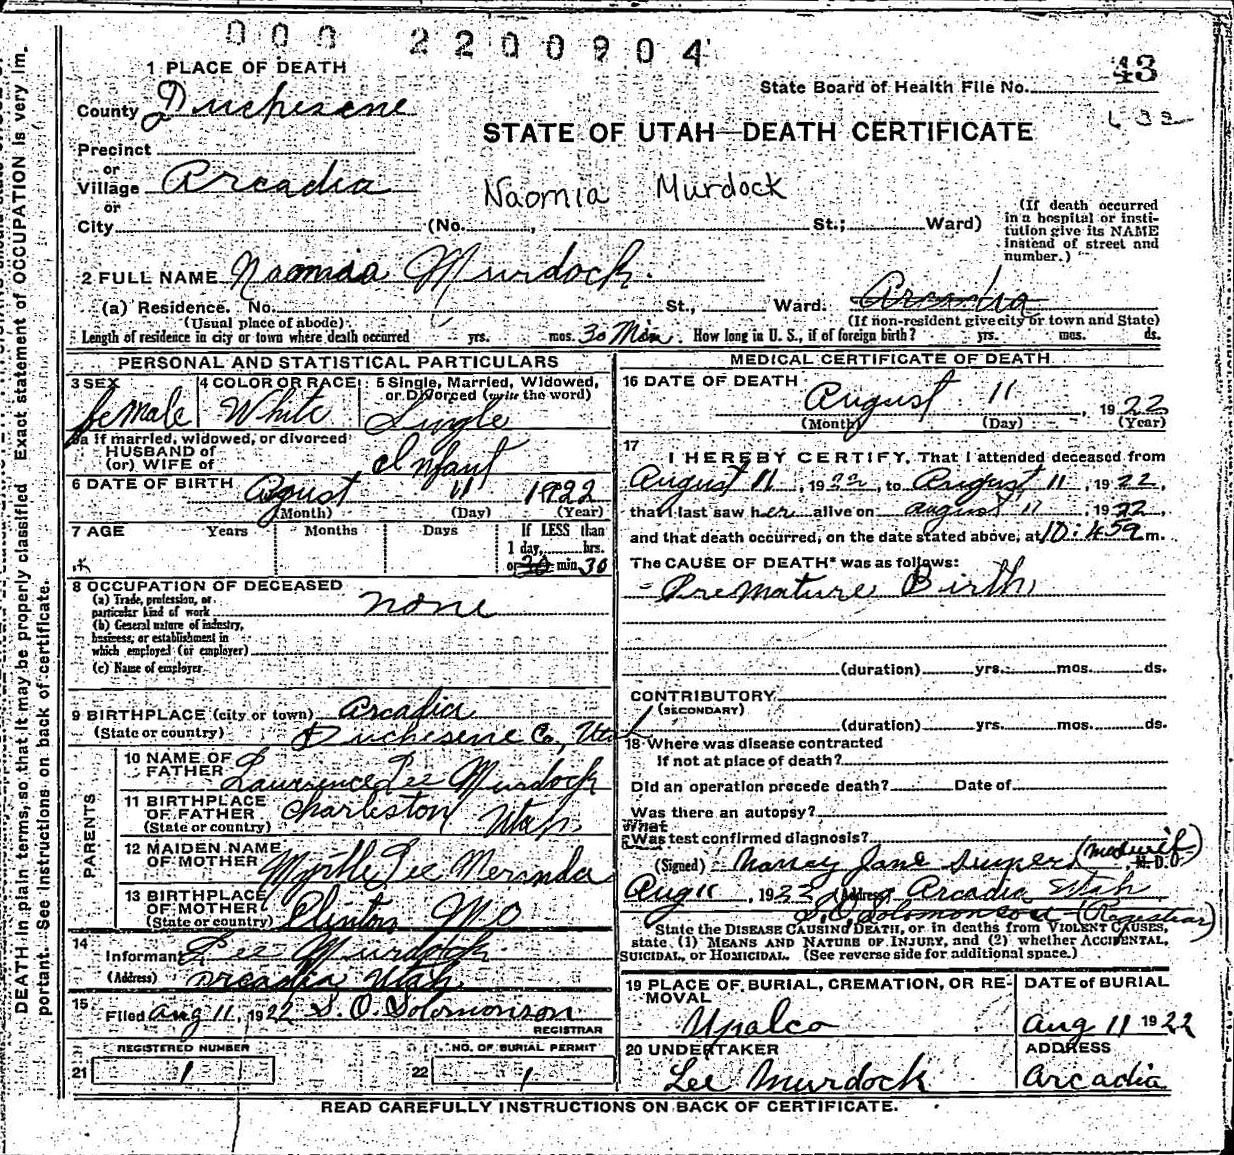 000 2200904
1 PLACE OF DEATH
43
State Board of Health File No.
County Duchesene
STATE OF UTAH—DEATH CERTIFICATE
Precinct
or
Village Arcadia
Naomia Murdock
or
City (No. , St.; Ward)
(If death occurred in a hospital or insti- tution give its NAME instead of street and number.)
2 FULL NAME Naomia Murdock.
(a) Residence. No. St., Ward. Arcadia
(Usual place of abode) (If non-resident give city or town and State)
Length of residence in city or town where death occurred yrs. mos. 30 Min. How long in U. S., if of foreign birth? yrs. mos. ds.
PERSONAL AND STATISTICAL PARTICULARS
3 SEX 4 COLOR OR RACE 5 Single, Married, Widowed, or Divorced (write the word)
female White Single
5a If married, widowed, or divorced
HUSBAND of
(or) WIFE of Infant
6 DATE OF BIRTH August 11 1922
(Month) (Day) (Year)
7 AGE Years Months Days If LESS than
1 day, hrs.
or 30 min. 30
8 OCCUPATION OF DECEASED
(a) Trade, profession, or
particular kind of work none
(b) General nature of industry,
business, or establishment in
which employed (or employer)
(c) Name of employer
9 BIRTHPLACE (city or town) Arcadia
(State or country) Duchesene Co, Utah
PARENTS
10 NAME OF
FATHER Lawrence Lee Murdock
11 BIRTHPLACE
OF FATHER Charleston Utah
(State or country)
12 MAIDEN NAME
OF MOTHER Myrtle Lee Meranda
13 BIRTHPLACE
OF MOTHER Clinton, MO
(State or country)
14
Informant Lee Murdock
(Address) Arcadia Utah
15
Filed Aug 11, 1922 S. O. Solomonson
REGISTRAR
REGISTERED NUMBER NO. OF BURIAL PERMIT
21 1 22 1
MEDICAL CERTIFICATE OF DEATH
16 DATE OF DEATH August 11, 1922
(Month) (Day) (Year)
17
I HEREBY CERTIFY, That I attended deceased from
August 11, 1922, to August 11, 1922,
that I last saw her alive on August 11, 1922
and that death occurred, on the date stated above, at 10:45 a m.
The CAUSE OF DEATH* was as follows:
Premature Birth
(duration) yrs. mos. ds.
CONTRIBUTORY
(SECONDARY)
(duration) yrs. mos. ds.
18 Where was disease contracted
if not at place of death?
Did an operation precede death? Date of
Was there an autopsy?
What
Was test confirmed diagnosis?
(Signed) Nancy Jane (Midwife) M. D.
Aug 11, 1922 (Address) Arcadia Utah
S. O. Solomonson (Registrar)
State the DISEASE CAUSING DEATH, or in deaths from VIOLENT CAUSES,
state (1) MEANS AND NATURE OF INJURY, and (2) whether ACCIDENTAL,
SUICIDAL, or HOMICIDAL. (See reverse side for additional space.)
19 PLACE OF BURIAL, CREMATION, OR RE-
MOVAL
Upalco
DATE of BURIAL
Aug 11 1922
20 UNDERTAKER
Lee Murdock
ADDRESS
Arcadia
READ CAREFULLY INSTRUCTIONS ON BACK OF CERTIFICATE.
DEATH in plain terms, so that it may be properly classified. Exact statement of OCCUPATION is very im-
portant. See Instructions on back of certificate.